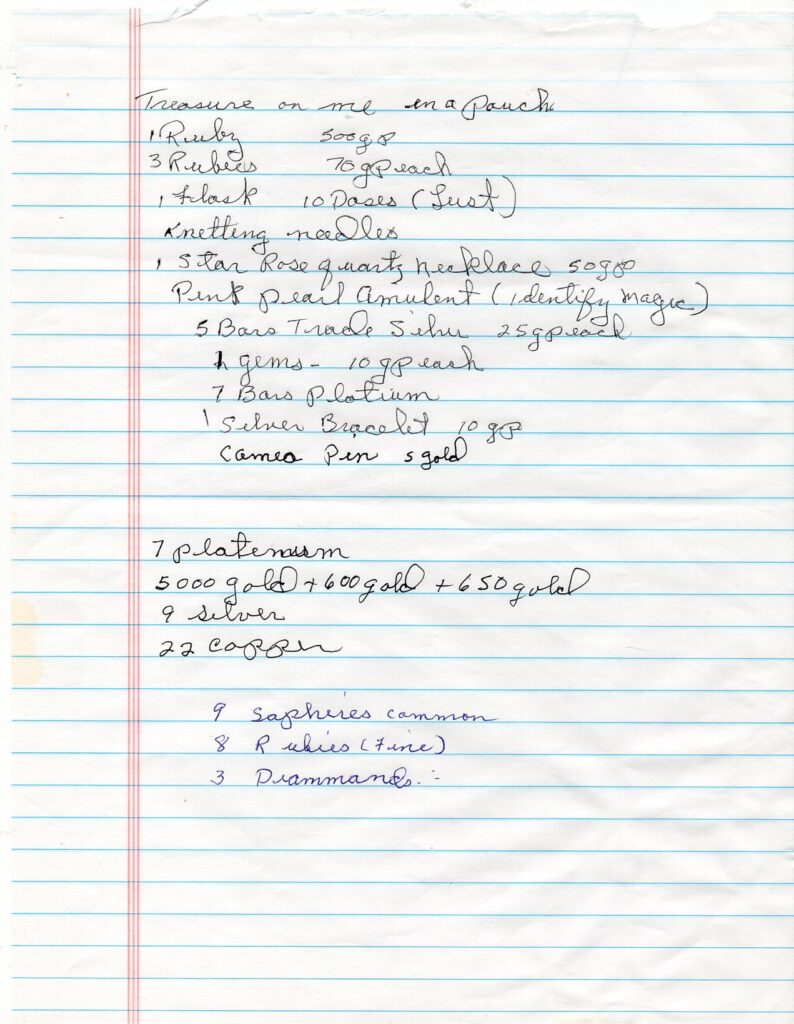 Treasure on me in a Pouch
1 Ruby 500gp
3 Rubies 70gp each
1 Flask 10 Doses (Lust)
Knetting needles
1 Star Rose quartz necklace 50gp
Pink pearl Amulent (identify magic)
5 Bars Trade Silver 25gp each
1 gems - 10gp each
7 Bars Platium
1 Silver Bracelet 10gp
Cameo Pin 5 gold
7 platenum
5000 gold + 600 gold + 650 gold
9 silver
22 copper
9 Saphires common
8 Rubies (Fine)
3 Diammands